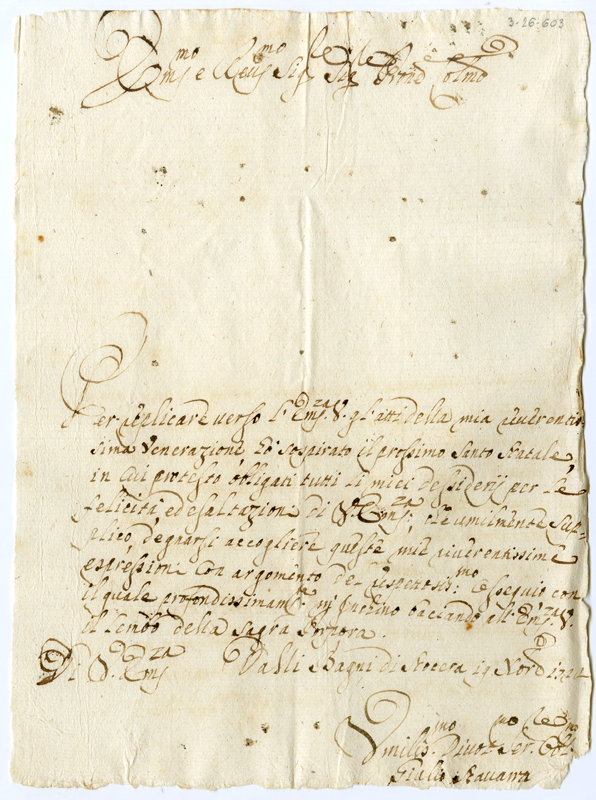 3-26-603
Em.mo e Reu.mo Sig.re Sig.re Prone Colmo
Per replicare verso l'Em.za V. gl'atti della mia riverentis-
sima Venerazione hò sospirato il prossimo Santo Natale,
in cui protesto obligati tutti li miei dessiderij per le
felicità, ed esaltazione di V. Em.za, che umilmente sup-
plico degnarsi accogliere queste mie riverentissime
espressioni con argomento del rispettosis.mo ossequio con
il quale profondissimam.te m'inchino baciando all'Em.za V.
il lembo della Sagra Porpora.
Di V. Em.za Dalli Bagni di Nocera 19
Umilis.mo Divot.mo Ser.re Obl.mo
Giulio Ravarra